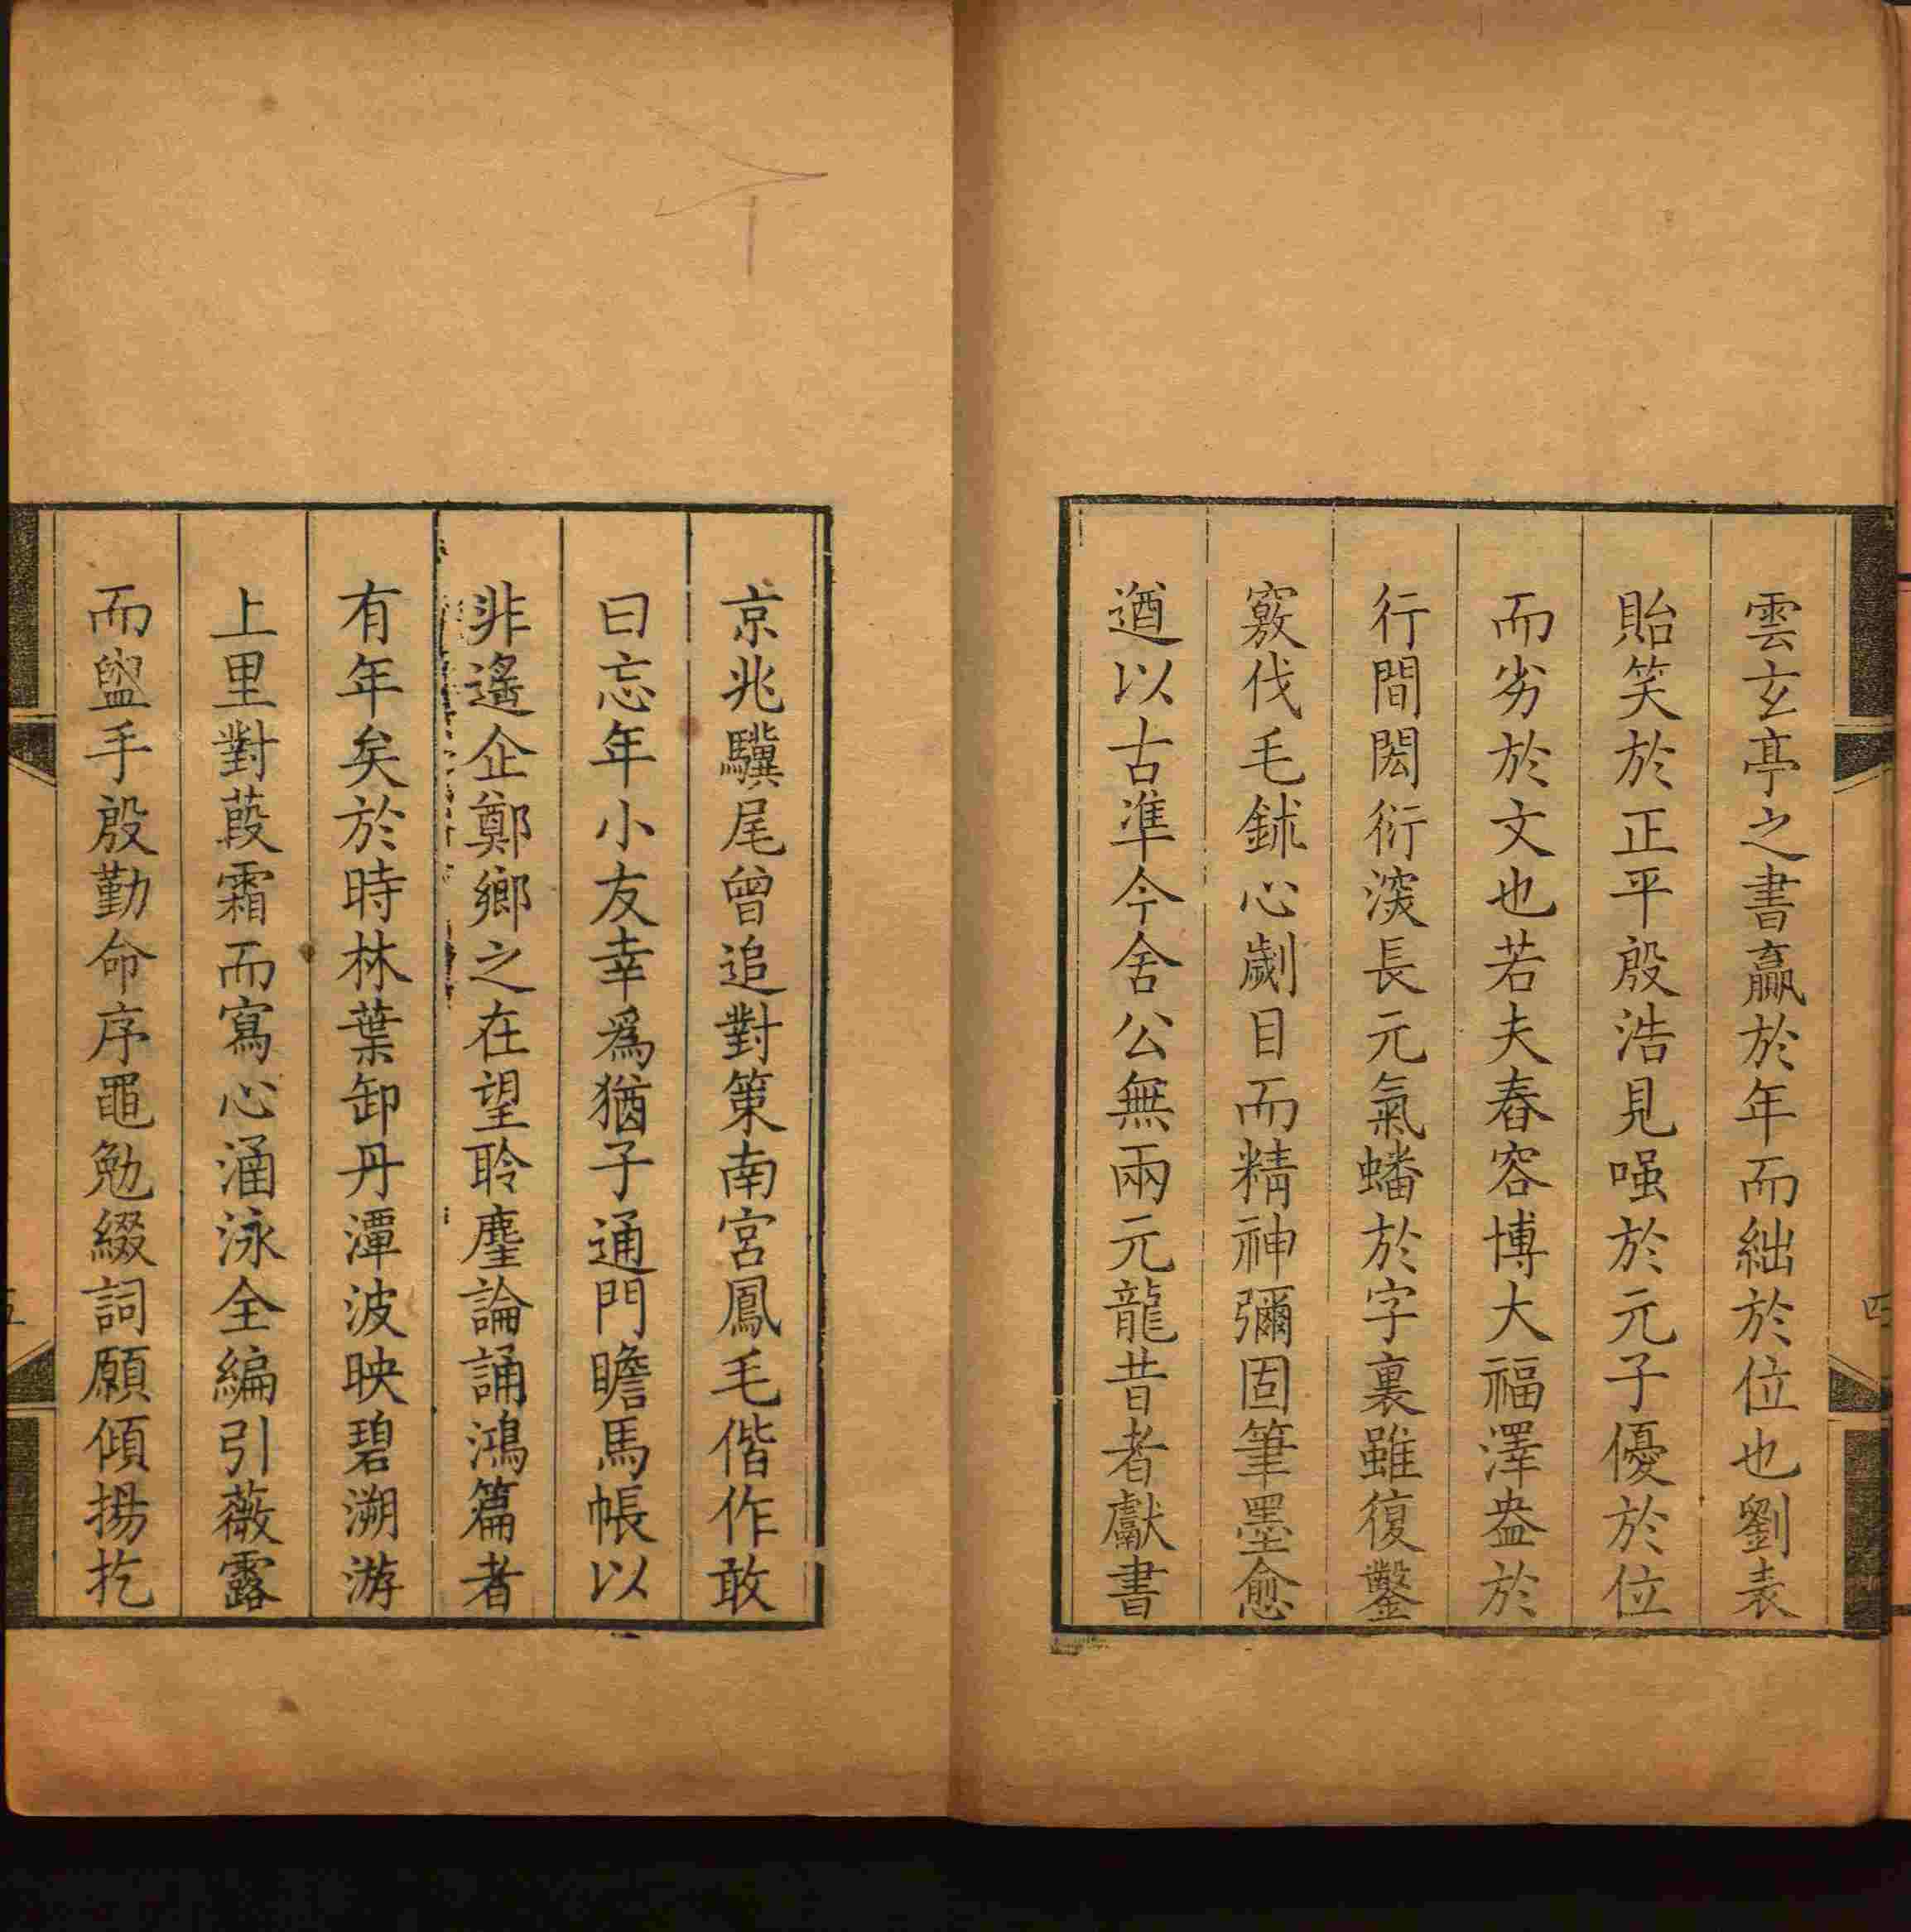 雲玄亭之書贏於年而絀於位也劉表
貽笑於正平殷浩見嗤於元子優於位
而劣於文也若夫舂容博大福澤盎於
行間閎衍淡長元氣蟠於字裏雖復鑿
竅伐毛鉥心劌目而精神彌固筆墨愈
遒以古準今舍公無兩元龍昔者獻書
京兆驥尾曾追對策南宮鳳毛偕作敢
曰忘年小友幸為猶子通門瞻馬帳以
非遙企鄭鄉之在望聆麈論誦鴻篇者
有年矣於時林葉卸丹潭波映碧溯游
上里對葭霜而寫心涵泳全編引薇露
而盥手殷勤命序黽勉綴詞願傾揚扢
四
五